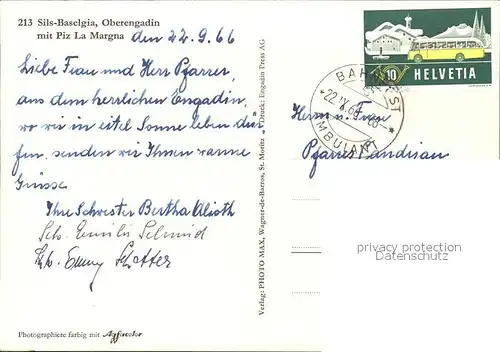 213 Sils-Baselgia, Oberengadin
mit Piz La Margna
den 22.9.66
Liebe Frau und Herr Pfarrer,
aus dem herrlichen Engadin,
wo wir in eitel Sonne leben dür-
fen, senden wir Ihnen warme
Grüsse.
Ihre Schwester Bertha Alioth
Schw. Emilie Schmid
Schw. Emmy
Photographiere farbig mit Agfacolor
Verlag: PHOTO MAX, Wagner-de-Barros, St. Moritz * Druck: Engadin Press AG
10
HELVETIA
BAHNPOST
22.IX.66
AMBULANT
Herrn u. Frau
Pfarrer
privacy protection
watermark